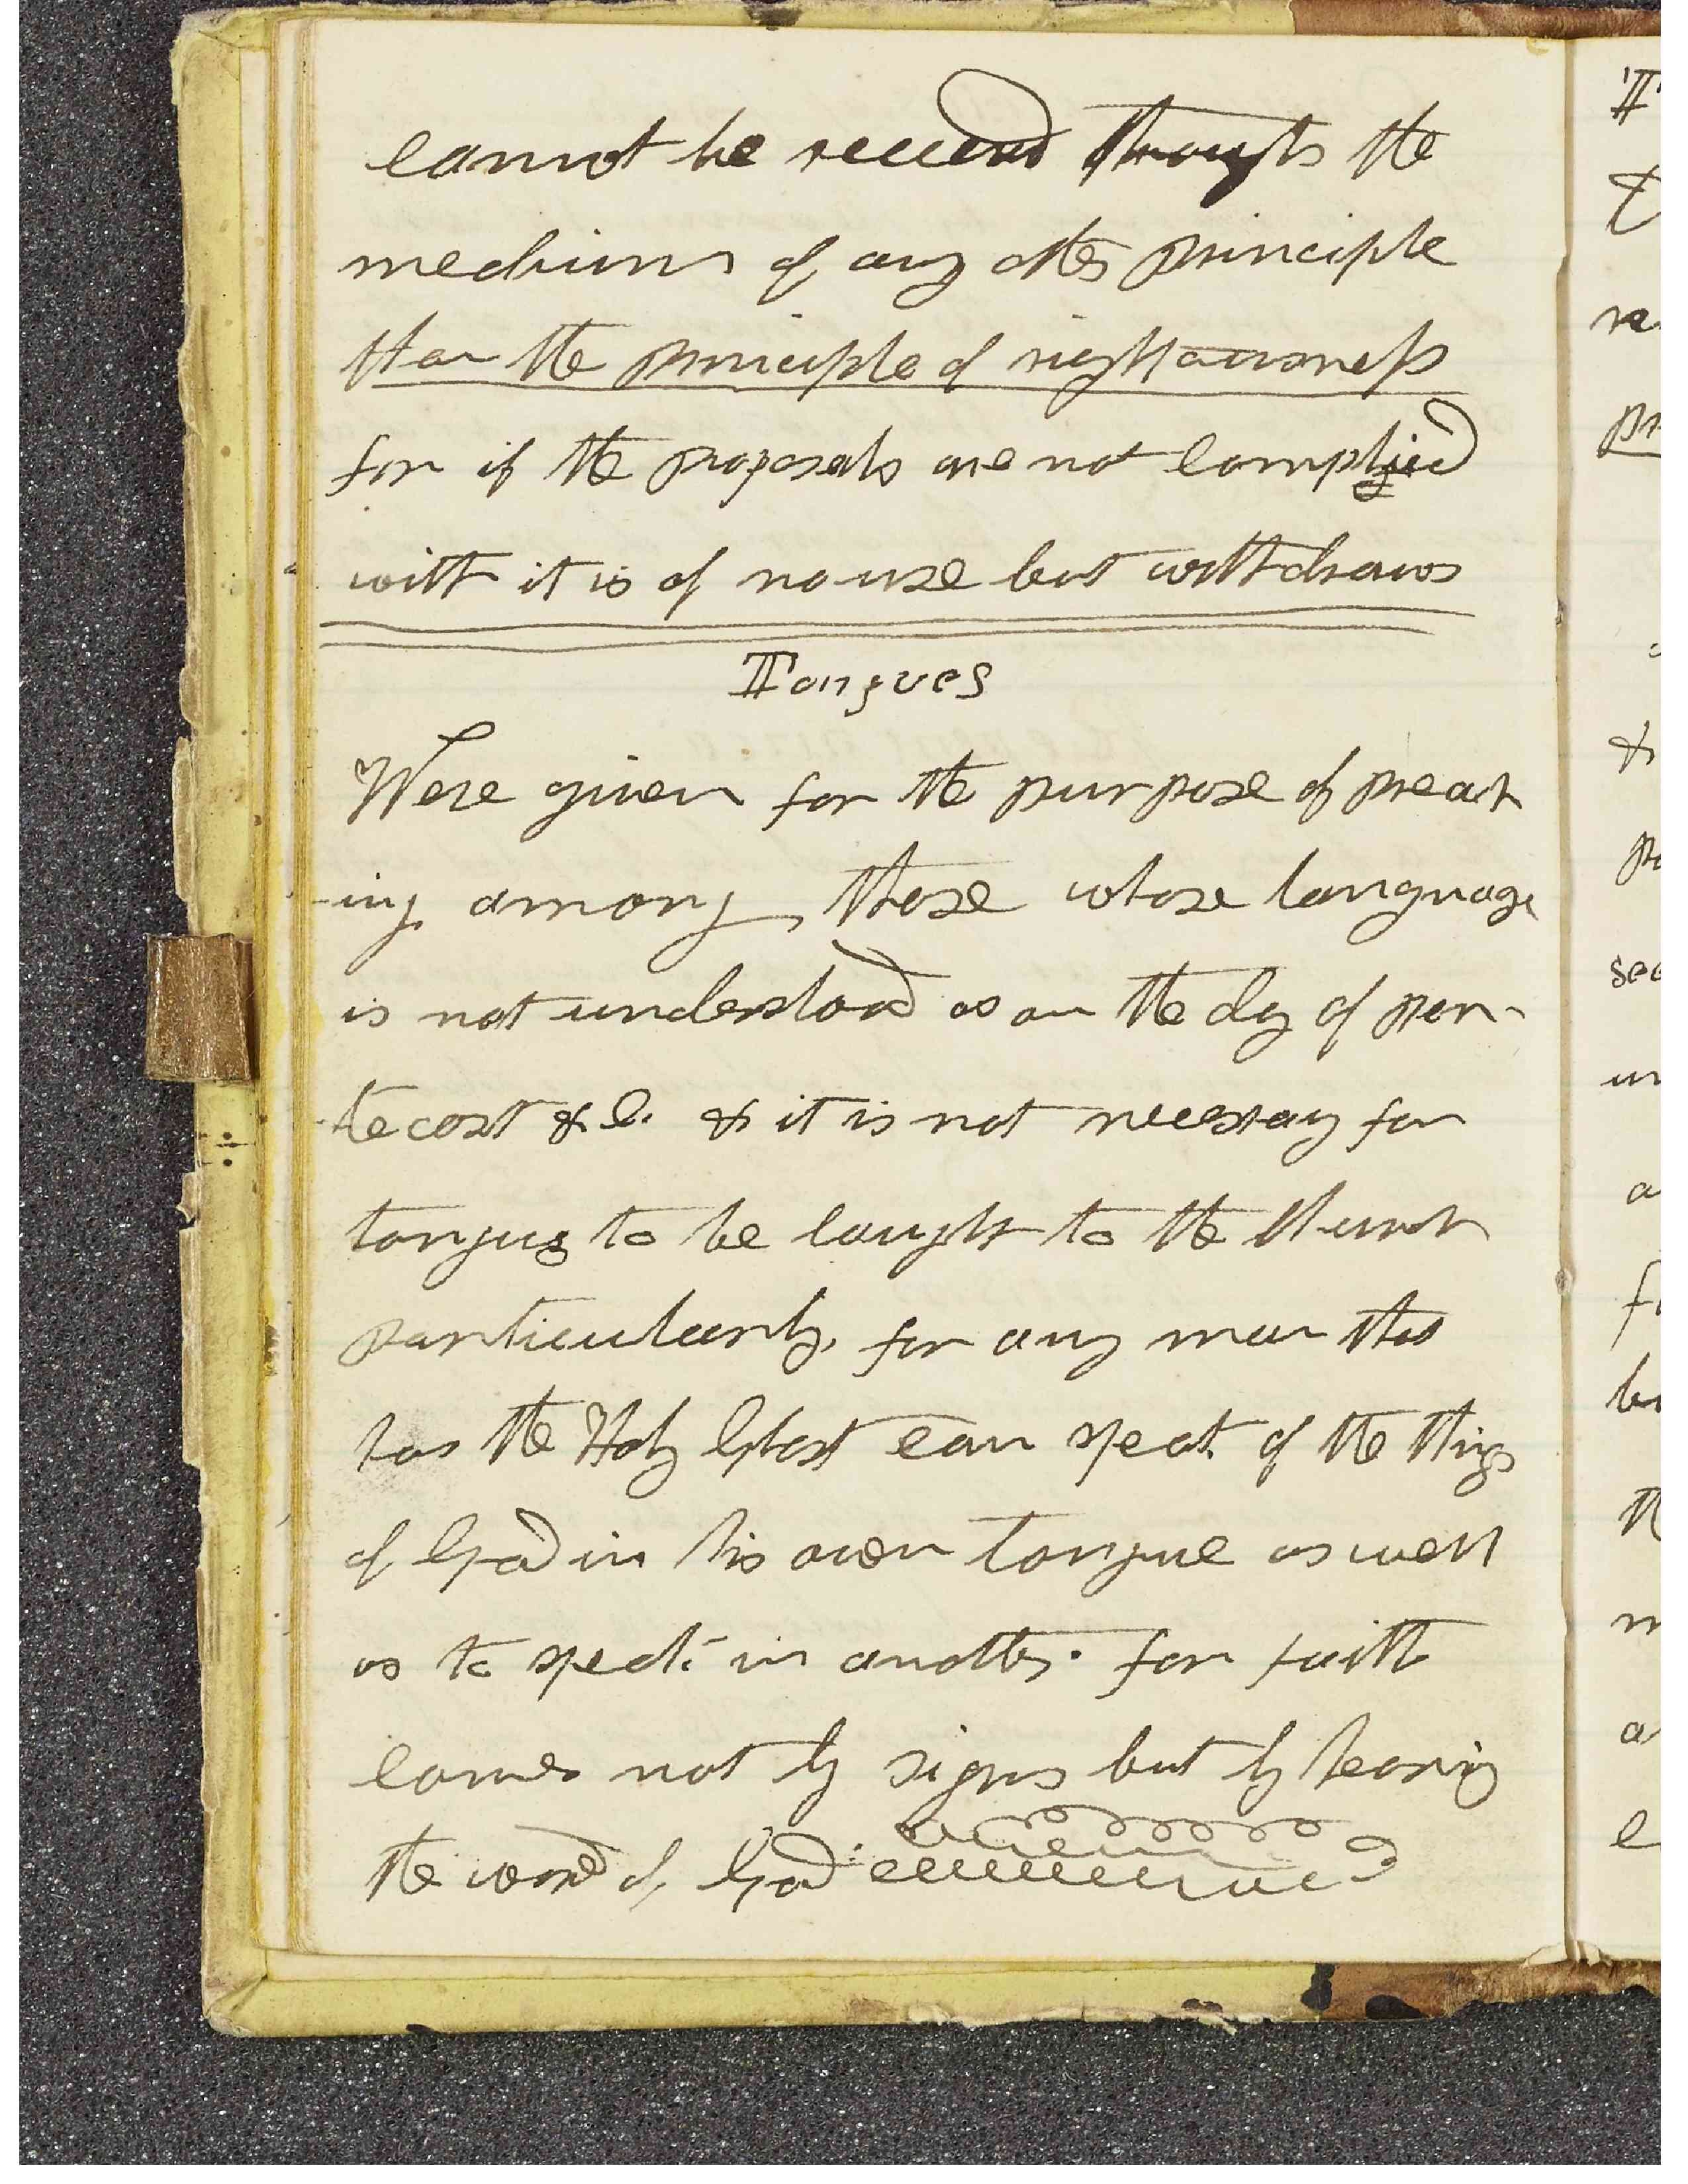 cannot be received through the
medium of any other principle
than the principle of righteousness
for if the proposals are not complied
with it is of no use but withdraws
Tongues
Were given for the purpose of preach
-ing among, those whose language
is not understood as on the day of pen-
tecost &c. & it is not necessary for
tongues to be taught to the Church
particularly, for any man that
has the Holy Ghost can speak of the things
of God in his own tongue as well
as to speak in another. for faith
comes not by signs but by hearing
the word of God.
T
re
pr
&
pu
see
un
a
f
bu
m
a
e